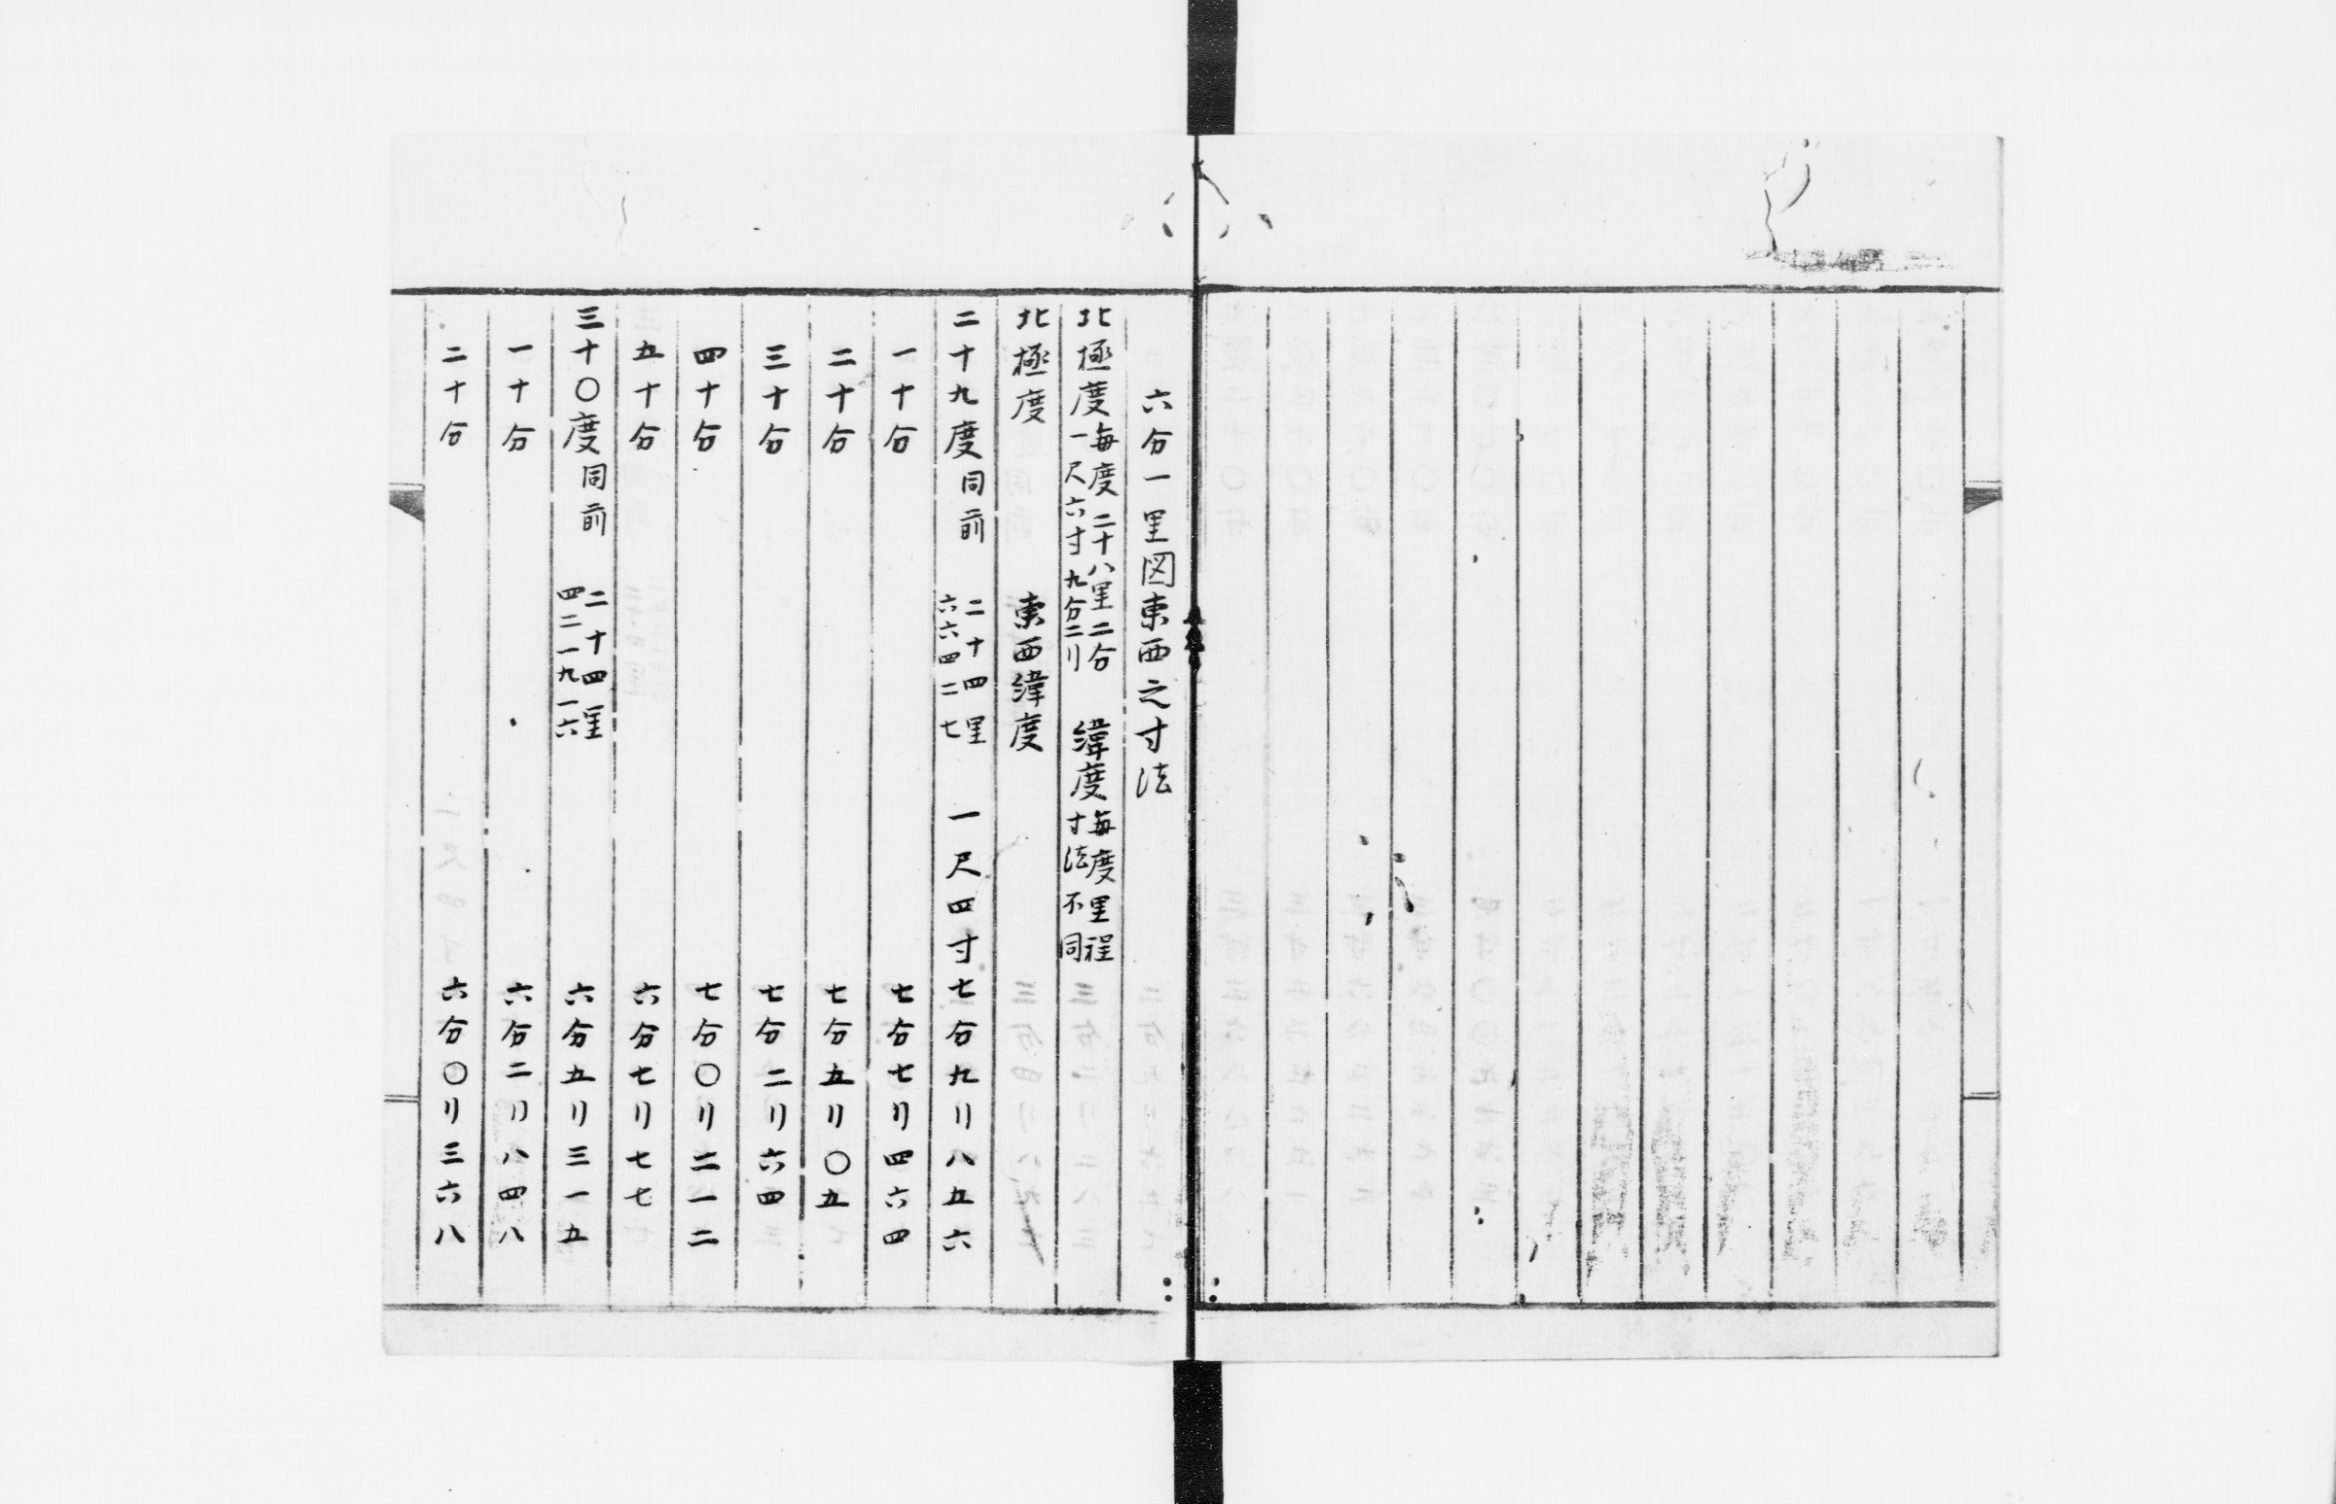 六分一里図東西之寸法
北極度 每度二十八里二分 一尺六寸九分二リ 緯度 每度里程 寸法不同
北極度 東西緯度
二十九度 同前 二十四里 六六四二七 一尺四寸七分九リ八五六
一十分 七分七リ四六四
二十分 七分五リ〇五
三十分 七分二リ六四
四十分 七分〇リ二一二
五十分 六分七リ七七
三十〇度 同前 二十四里 四二一九一六 六分五リ三一五
一十分 六分二リ八四八
二十分 六分〇リ三六八